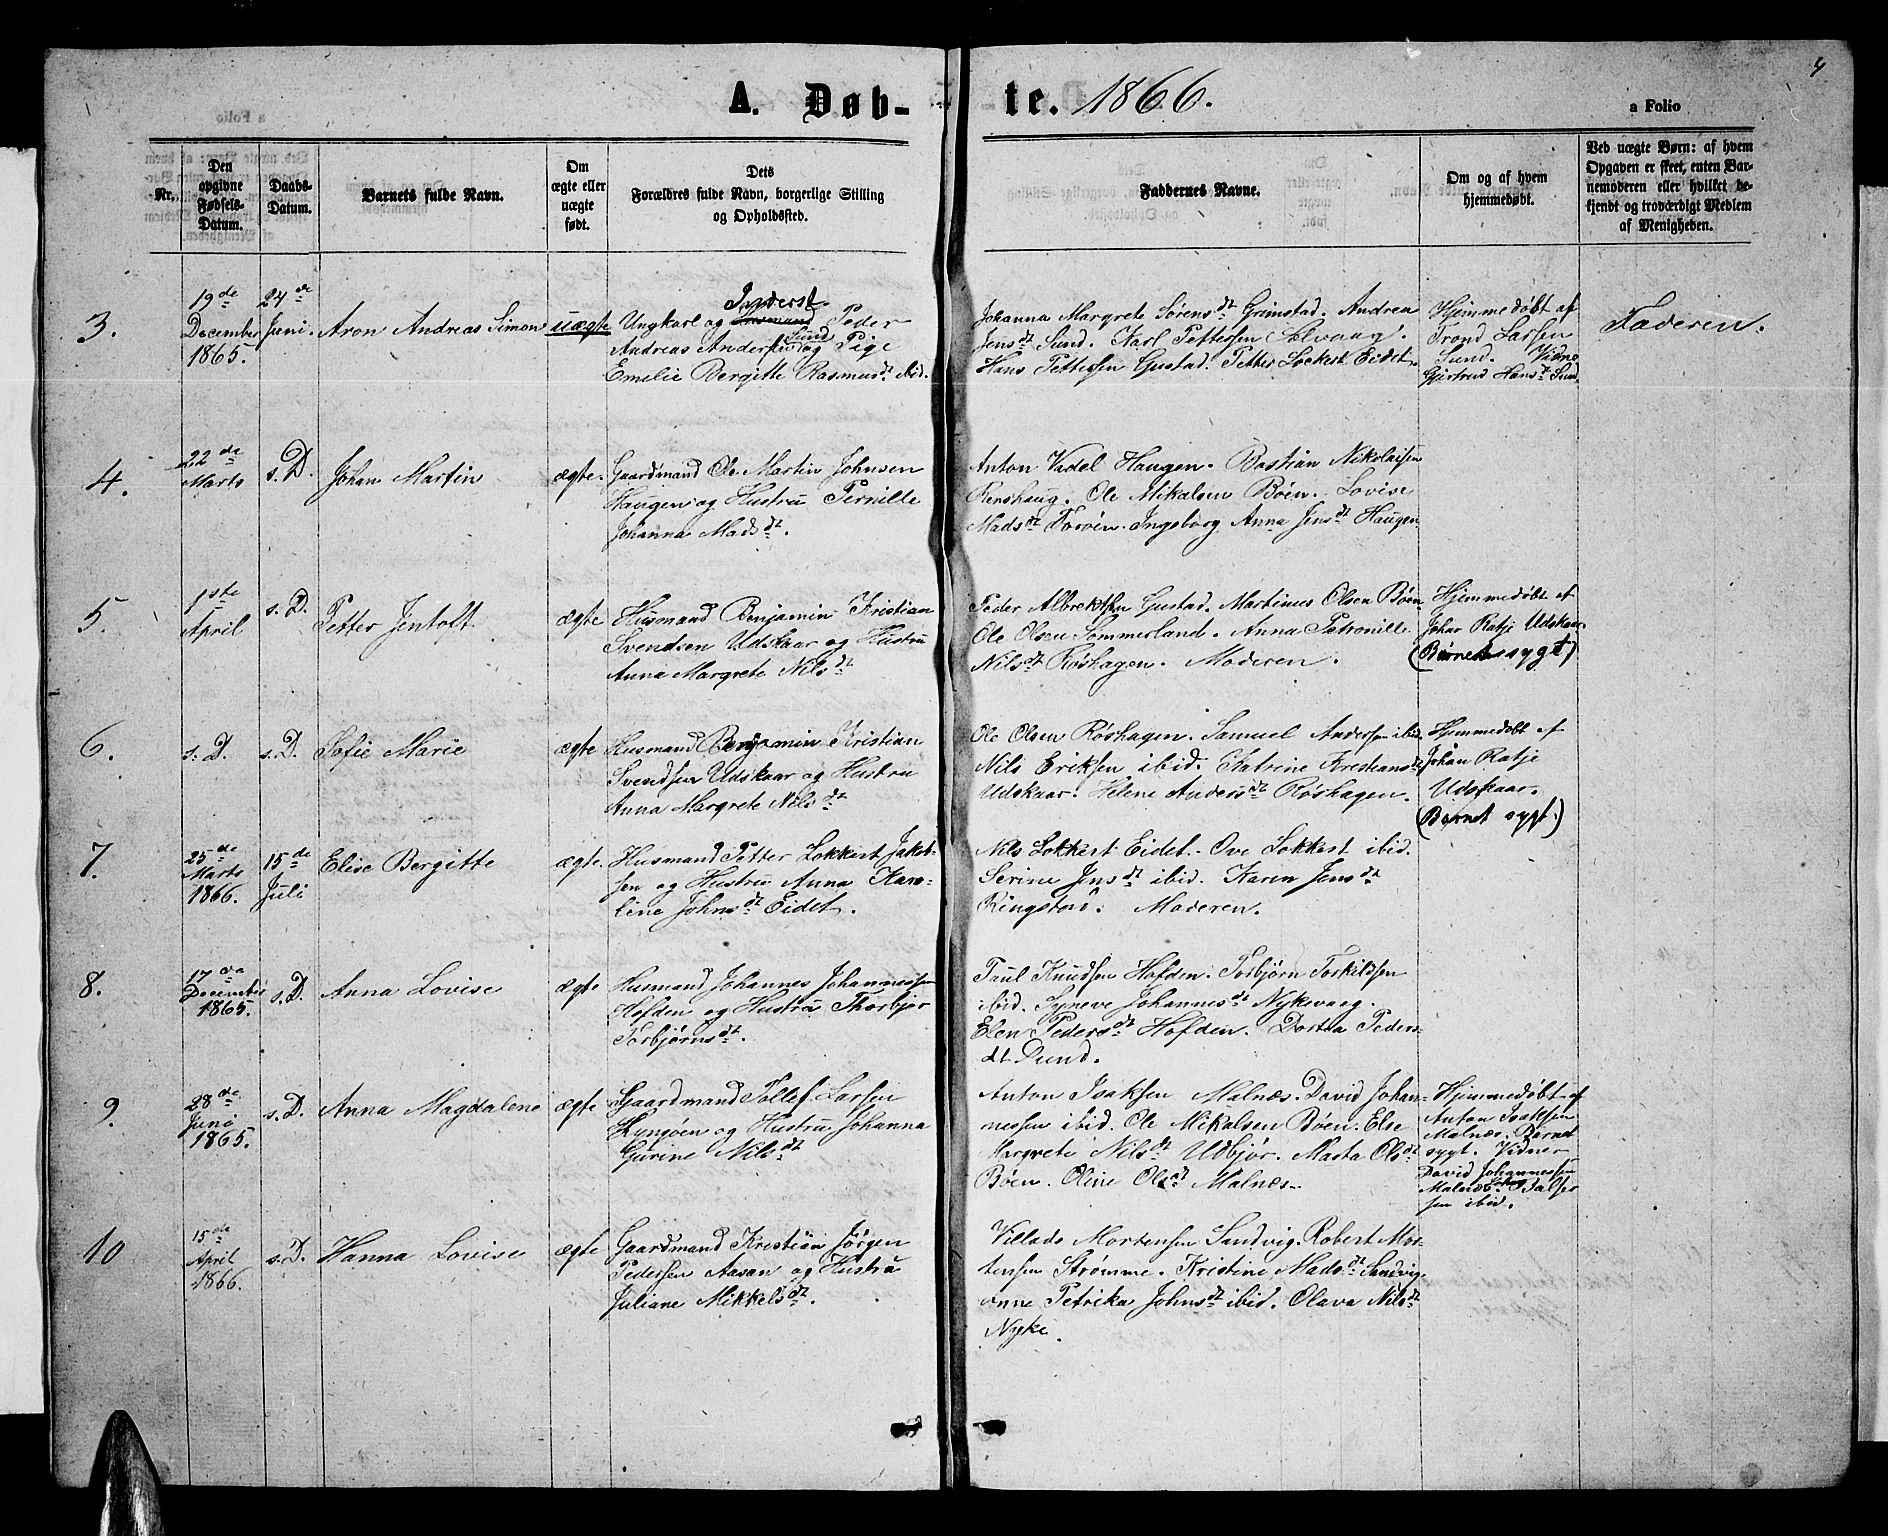 A. Døb-
te. 1866.
4
a Folio
Nr.
Den
opgivne
Fødsels-
Datum.
Daabs-
Datum.
Barnets fulde Navn.
Om
ægte eller
uægte
født.
Dets
Forældres fulde Navn, borgerlige Stilling
og Opholdssted.
Faddernes Navne.
Om og af hvem
hjemmedøbt.
Ved uægte Børn: af hvem
Opgaven er skeet, enten Bar-
nemoderen eller hvilket be-
kjendt og troværdigt Medlem
af Menigheden.
3.
19de
December
1865.
24de
Juni.
Aron Andreas Simon
uægte
Inderst
Ungkarl og Peder
Sund
Andreas Andersen og Pige
Emelie Bergitte Rasmusdt ibid.
Johanna Margrete Sørensdt Grimstad. Andrea
Jensdt Sund. Karl Pettersen Solvaag.
Hans Pettersen Gustad. Petter Lockert Eidet
Hjemmedøbt af
Trond Larsen
Sund. Vidne
Gjertrud Hansdt Sund.
Faderen.
4.
22de
Marts
s. D.
Johan Martin
ægte.
Gaardmand Ole Martin Johnsen
Haugen og Hustru Pernille
Johanna Madsdt.
Anton Vadel Haugen. Bastian Nikolaisen
Renshaug. Ole Mikalsen Bøen. Lovise
Madsdt Forøen. Ingeborg Anna Jensdt Haugen
5.
1ste
April
s. D.
Petter Jentoft.
ægte
Husmand Benjamin Kristian
Svendsen Udskaar og Hustru
Anna Margrete Nilsdt
Peder Albrektsen Gustad. Martinus Olsen Bøen
Ole Olsen Sommerland. Anna Petronille
Nilsdt Røshagen. Moderen.
Hjemmedøbt af
Johan Ratje Udskaar
(Barnet sygt)
6.
s. D.
s. D.
Sofie Marie
ægte
Husmand Benjamin Kristian
Svendsen Udskaar og Hustru
Anna Margrete Nilsdt
Ole Olsen Røshagen. Samuel Andersen ibid.
Nils Eriksen ibid. Katrine Kristiansdt
Udskaar. Helene Andersdt Røshagen.
Hjemmedøbt af
Johan Ratje
Udskaar.
(Barnet sygt.)
7.
25de
Marts
1866.
15de
Juli
Elise Bergitte
ægte.
Husmand Petter Lokkert Jakob-
sen og Hustru Anna Karo-
line Johnsdt Eidet.
Nils Lokkert Eidet. Ove Lokkert ibid.
Serine Jensdt ibid. Karen Jensdt
Ringstad. Moderen.
8.
17de
December
1865.
s. D.
Anna Lovise
ægte
Husmand Johannes Johannessen
Hofden og Hustru Thorbjør
Torbjørnsdt.
Paul Knudsen Hofden. Torbjørn Torkildsen
ibid. Syneve Johannesdt Nykevaag.
Elen Pedersdt Hofden. Dortea Peders
dt Sund.
9.
28de
Juni
1865.
s. D.
Anna Magdalene
ægte
Gaardmand Tollef Larsen
Lyngøen og Hustru Johanna
Gurine Nilsdt
Anton Isaksen Malnæs. David Johan-
nessen ibid. Ole Mikalsen Bøen. Else
Margrete Nilsdt Udbjør. Marta Olsdt
Bøen. Oline Olsdt Malnæs.
Hjemmedøbt af
Anton Isaksen
Malnæs. Barnet
sygt. Vidner
David Johannessen
Malnæs
sen ibid.
10
15de
April
1866.
s. D.
Hanna Lovise
ægte
Gaardmand Kristian Jørgen
Pedersen Aasan og Hustru
Juliane Mikkelsdt.
Villads Mortensen Sandvig. Robert Mor-
tensen Strømme. Kristine Madsdt Sandvig.
Anne Petrika Johnsdt ibid. Olava Nilsdt
Nyke.